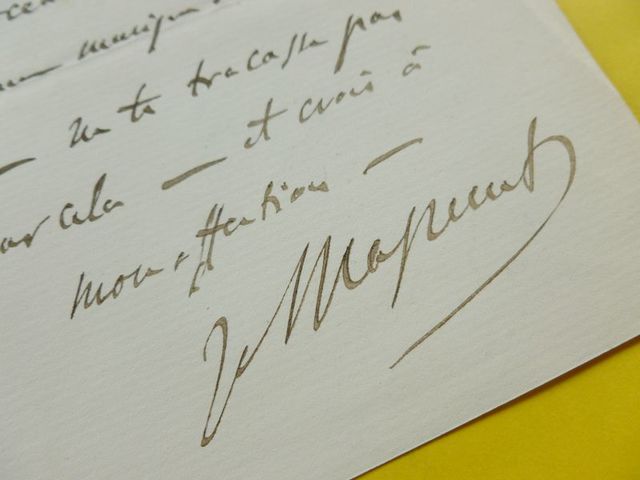 musique
— ne te tracasse pas
par cela — et crois à
mon affection —
J. Massenet